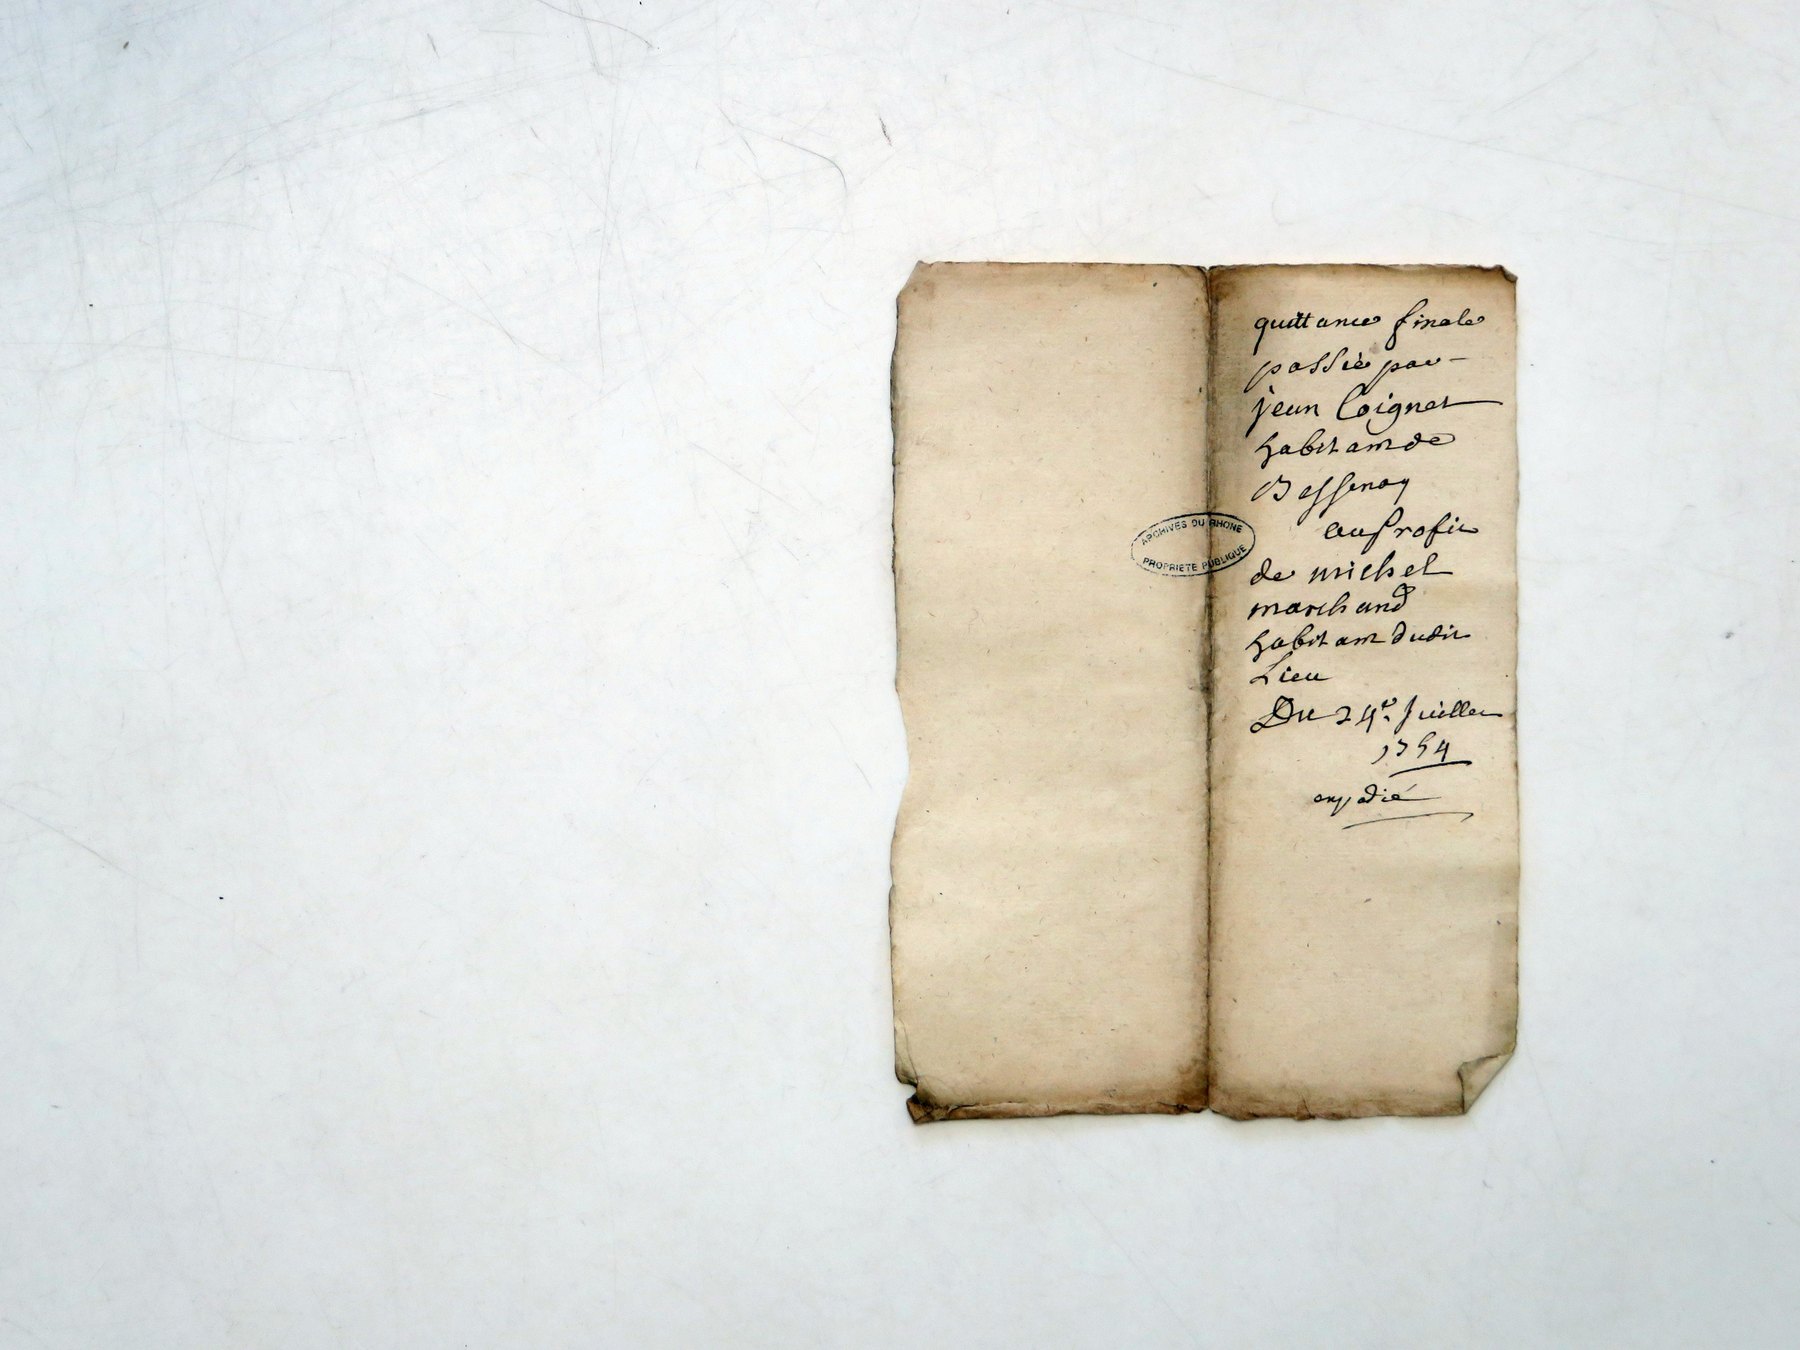 quittance finale
passée par
jean Coignet
habitant de
Bessenay
au profit
ARCHIVES DU RHONE
PROPRIETE PUBLIQUE
de michel
marchand
habitant dudit
Lieu
Du 24e. Juillet
1754
expédié